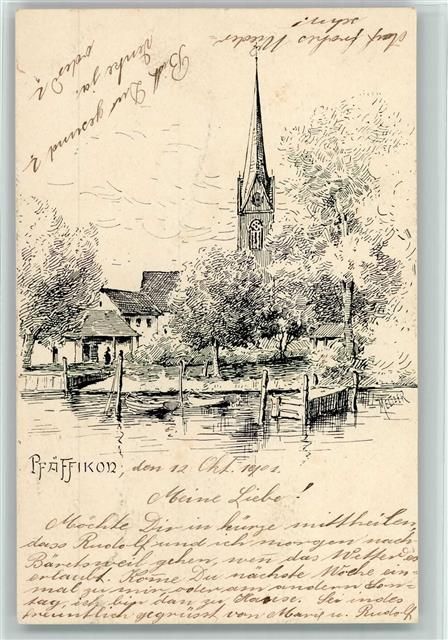 Auf frohes Wieder-
sehn!
Bist Du gesund &
denke ja
oder?
PFÄFFIKON, den 12 Okt. 1901.
Meine Liebe!
Möchte Dir in kürze mittheilen,
dass Rudolf und ich morgen nach
Bäretsweil gehen, wen das Wetter es
erlaubt. Kome Du nächste Woche ein-
mal zu mir oder am andern Son-
tag, ich bin dan zu Hause. Sei indes
freundlich gegrüsst von Marie u. Rudolf